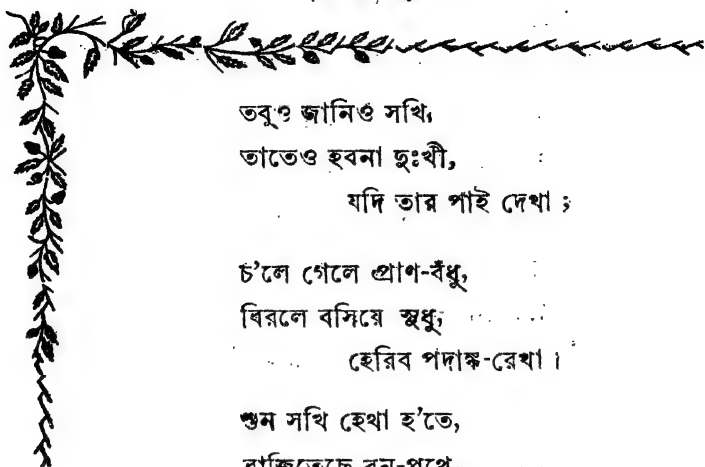 তবুও জানিও সখি,
তাতেও হবনা দুঃখী,
যদি তার পাই দেখা ;
চ'লে গেলে প্রাণ-বঁধু,
বিরলে বসিয়ে সুধু,
হেরিব পদাঙ্ক-রেখা ।
শুন সখি হেথা হ'তে,